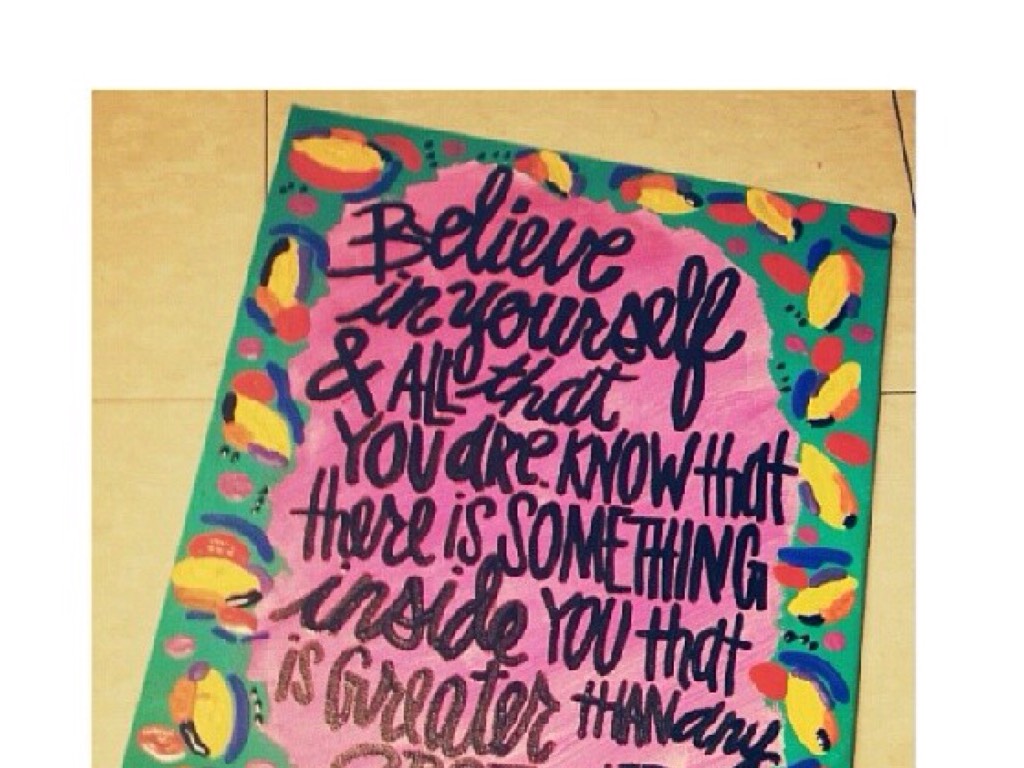 Believe
in yourself
& ALL that
YOU are. KNOW that
there is SOMETHING
inside YOU that
is Greater THAN any